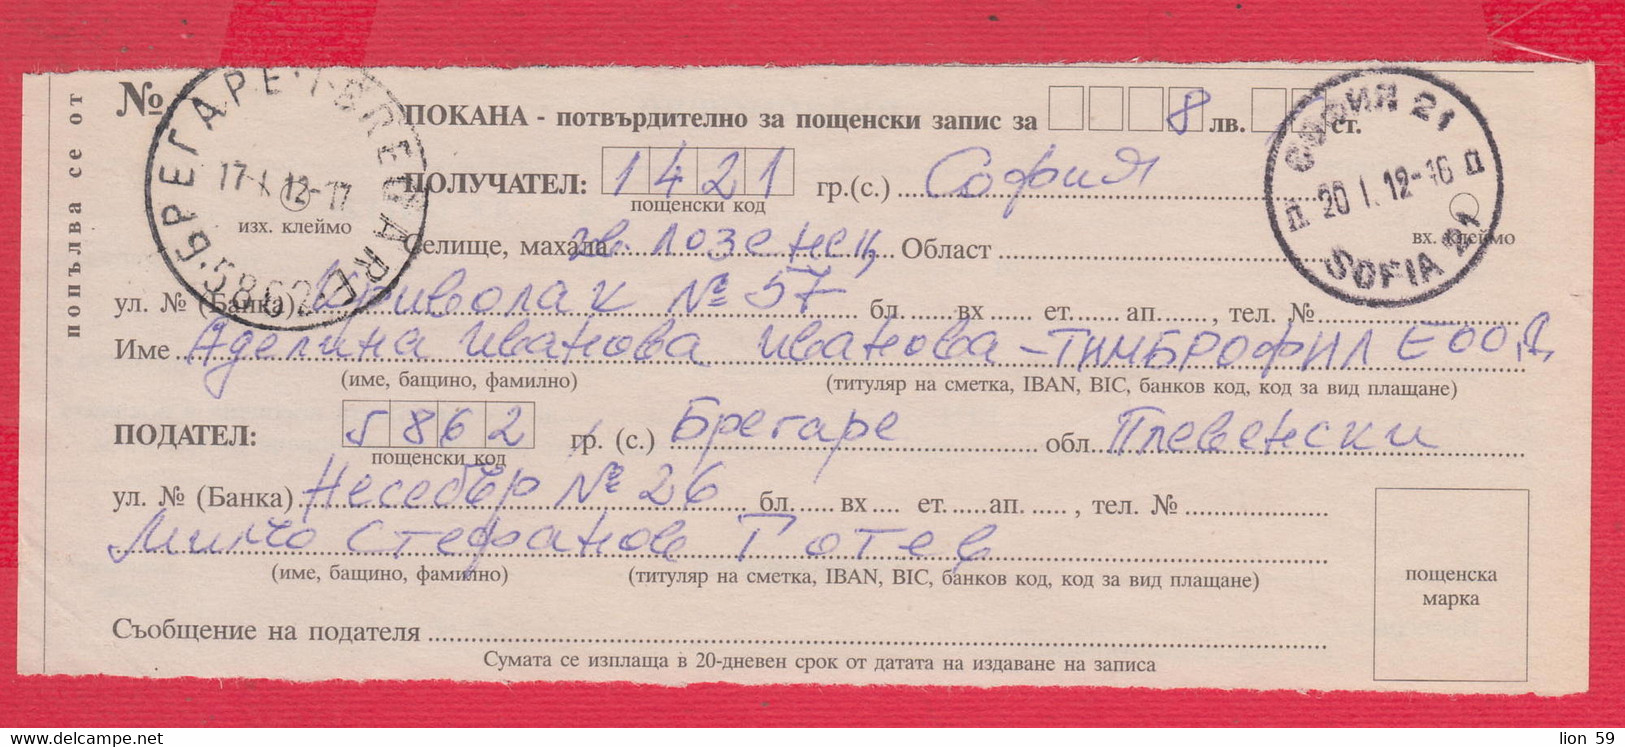 попълва се от
№
ПОКАНА - потвърдително за пощенски запис за 8 лв. ст.
БРЕГАРЕ · BREGARE · 5862
17-I.12-17
изх. клеймо
СОФИЯ 21
П. 20 I. 12-16 П
SOFIA 21
вх. клеймо
ПОЛУЧАТЕЛ: 1421 гр.(с.) София
пощенски код
Селище, махала кв лозенец Област
ул. № (Банка) Криволак № 57 бл. вх ет. ап. , тел. №
Име Аделина Иванова Иванова - ТИМБРОФИЛ ЕООД
(име, бащино, фамилно) (титуляр на сметка, IBAN, BIC, банков код, код за вид плащане)
ПОДАТЕЛ: 5862 гр. (с.) Брегаре обл. Плевенски
пощенски код
ул. № (Банка) Несебър № 26 бл. вх ет. ап. , тел. №
Минчо Стефанов Готев
(име, бащино, фамилно) (титуляр на сметка, IBAN, BIC, банков код, код за вид плащане)
пощенска
марка
Съобщение на подателя
Сумата се изплаща в 20-дневен срок от датата на издаване на записа
lion 59